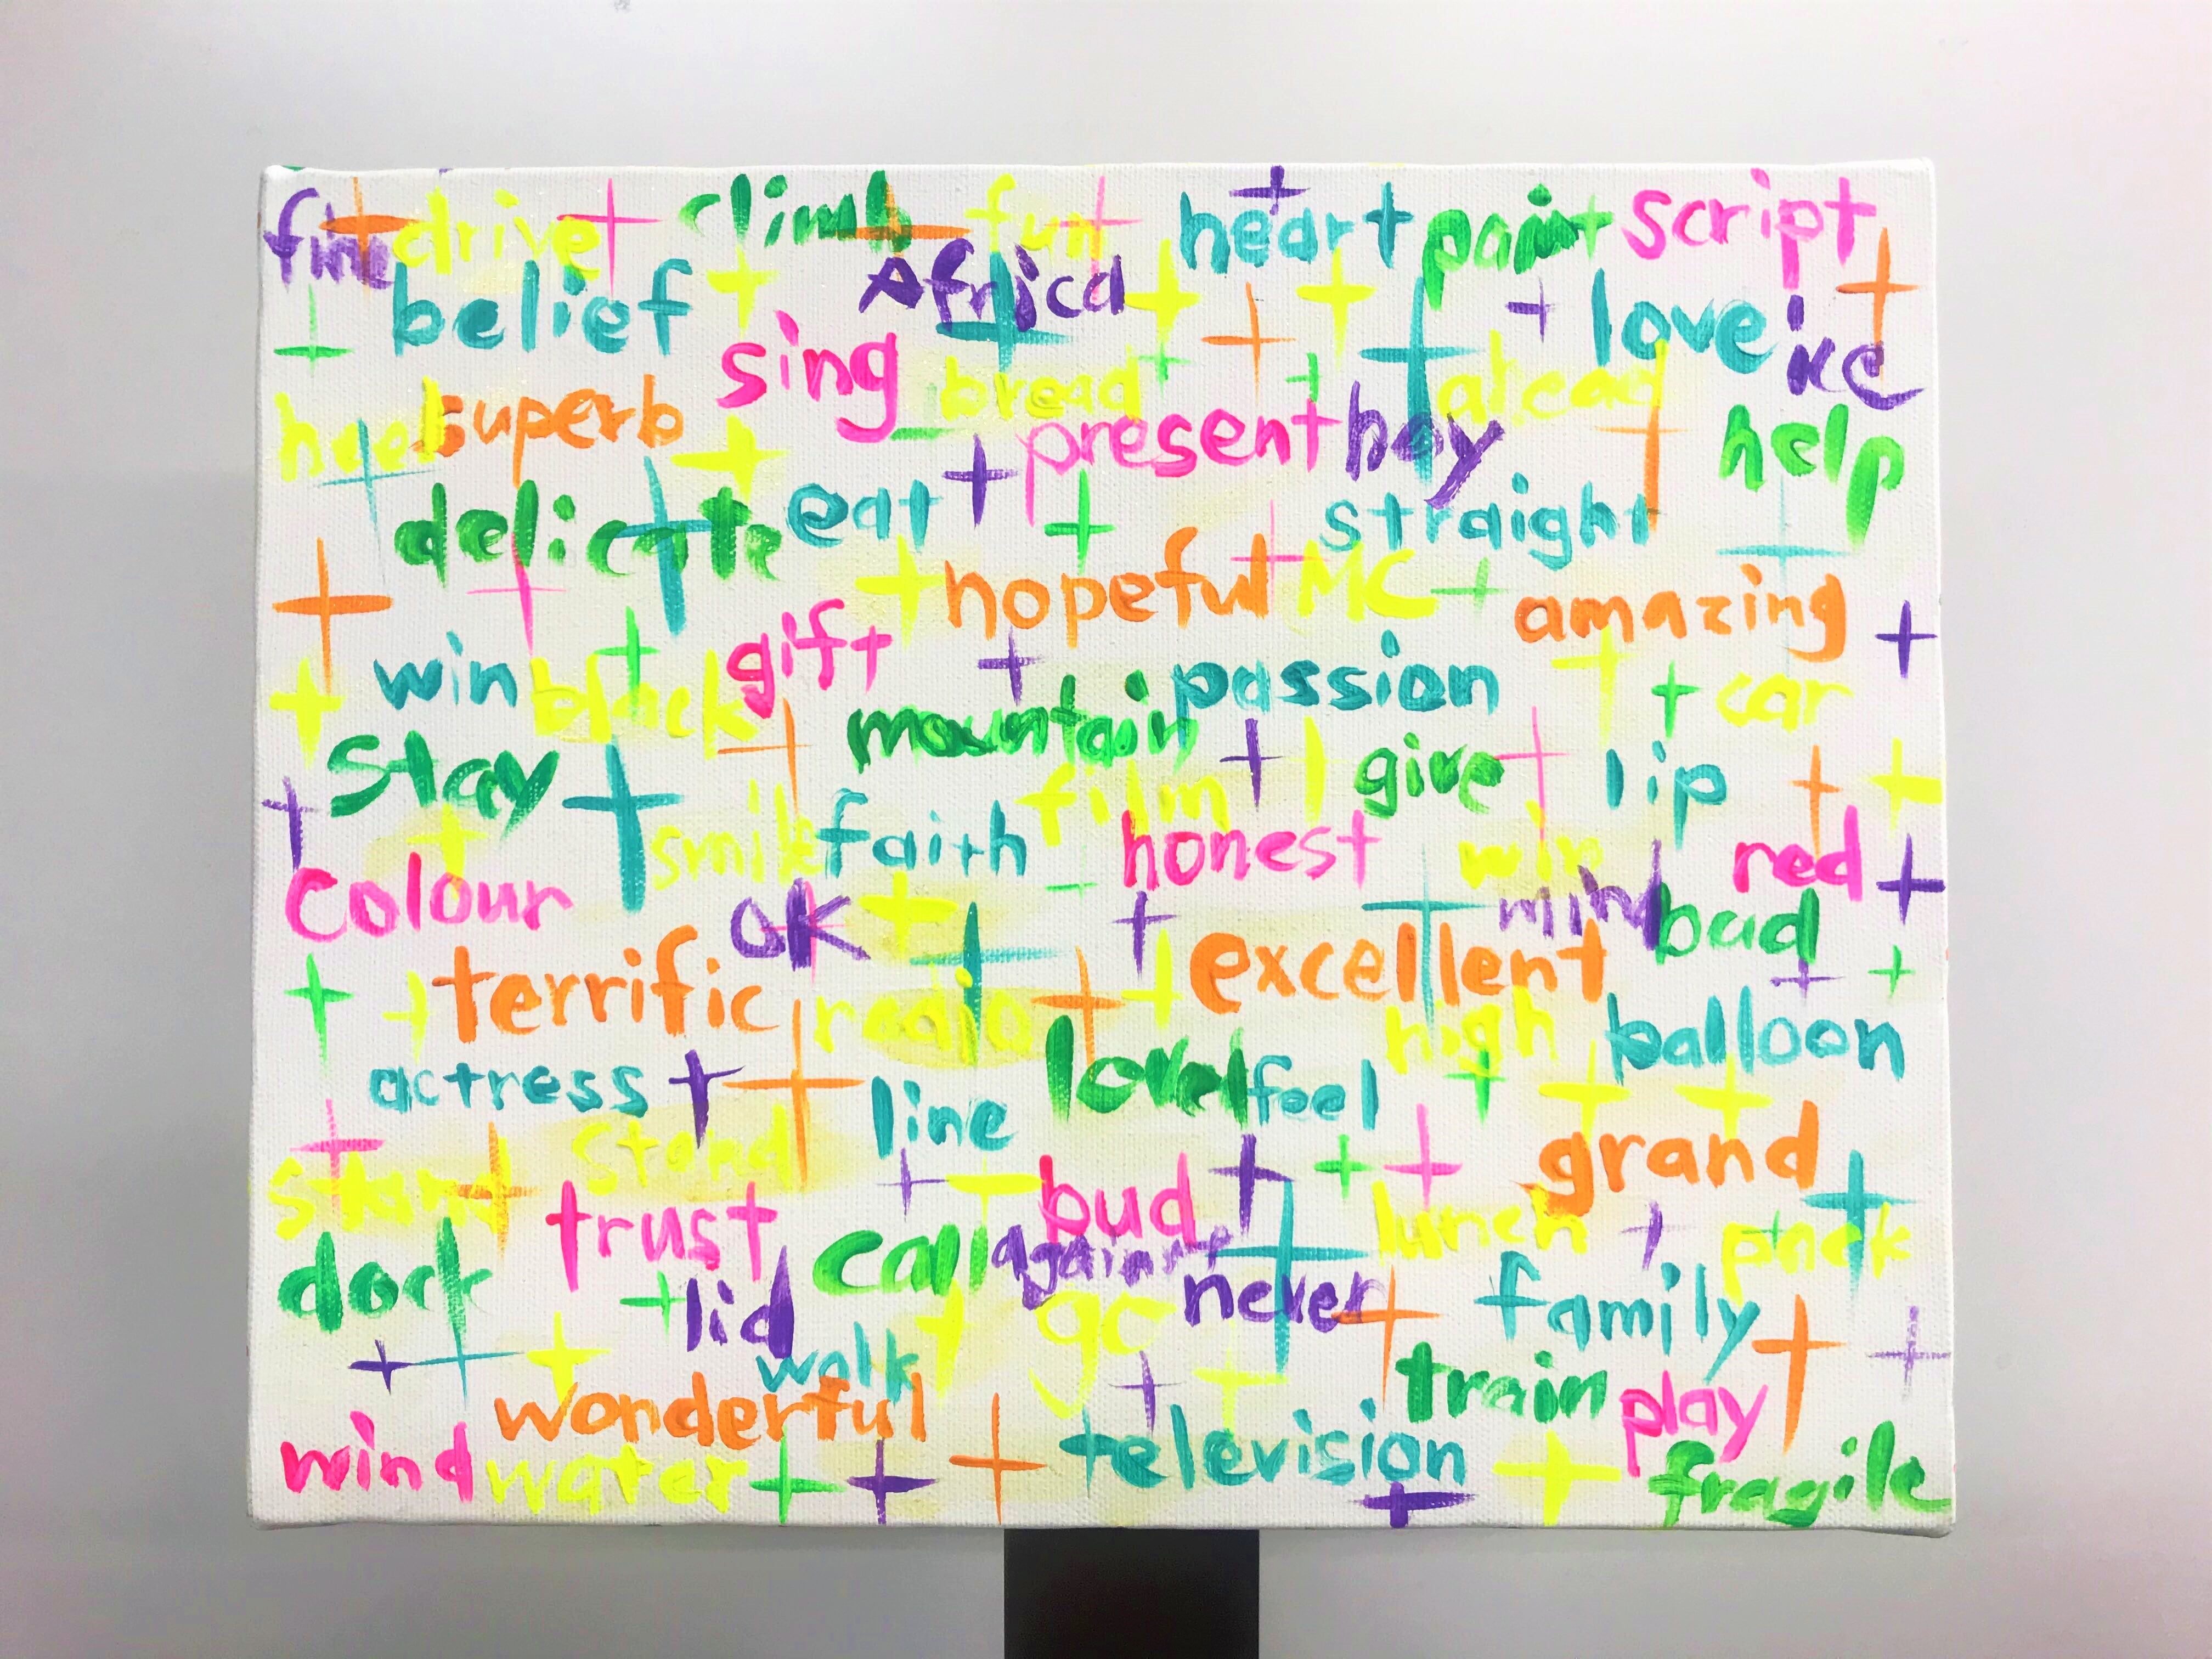 fine drive climb fun heart paint script
belief Africa love ice
sing bread ahead
superb present hay help
delicate eat straight
hopeful MC amazing
win black gift passion car
stay mountain give lip
smile faith film honest win red
colour OK mind bad
terrific radio excellent high balloon
actress line feel
stand stand grand
trust bud lunch
dark call against never family
lid go
walk train play
wonderful television
wind water fragile